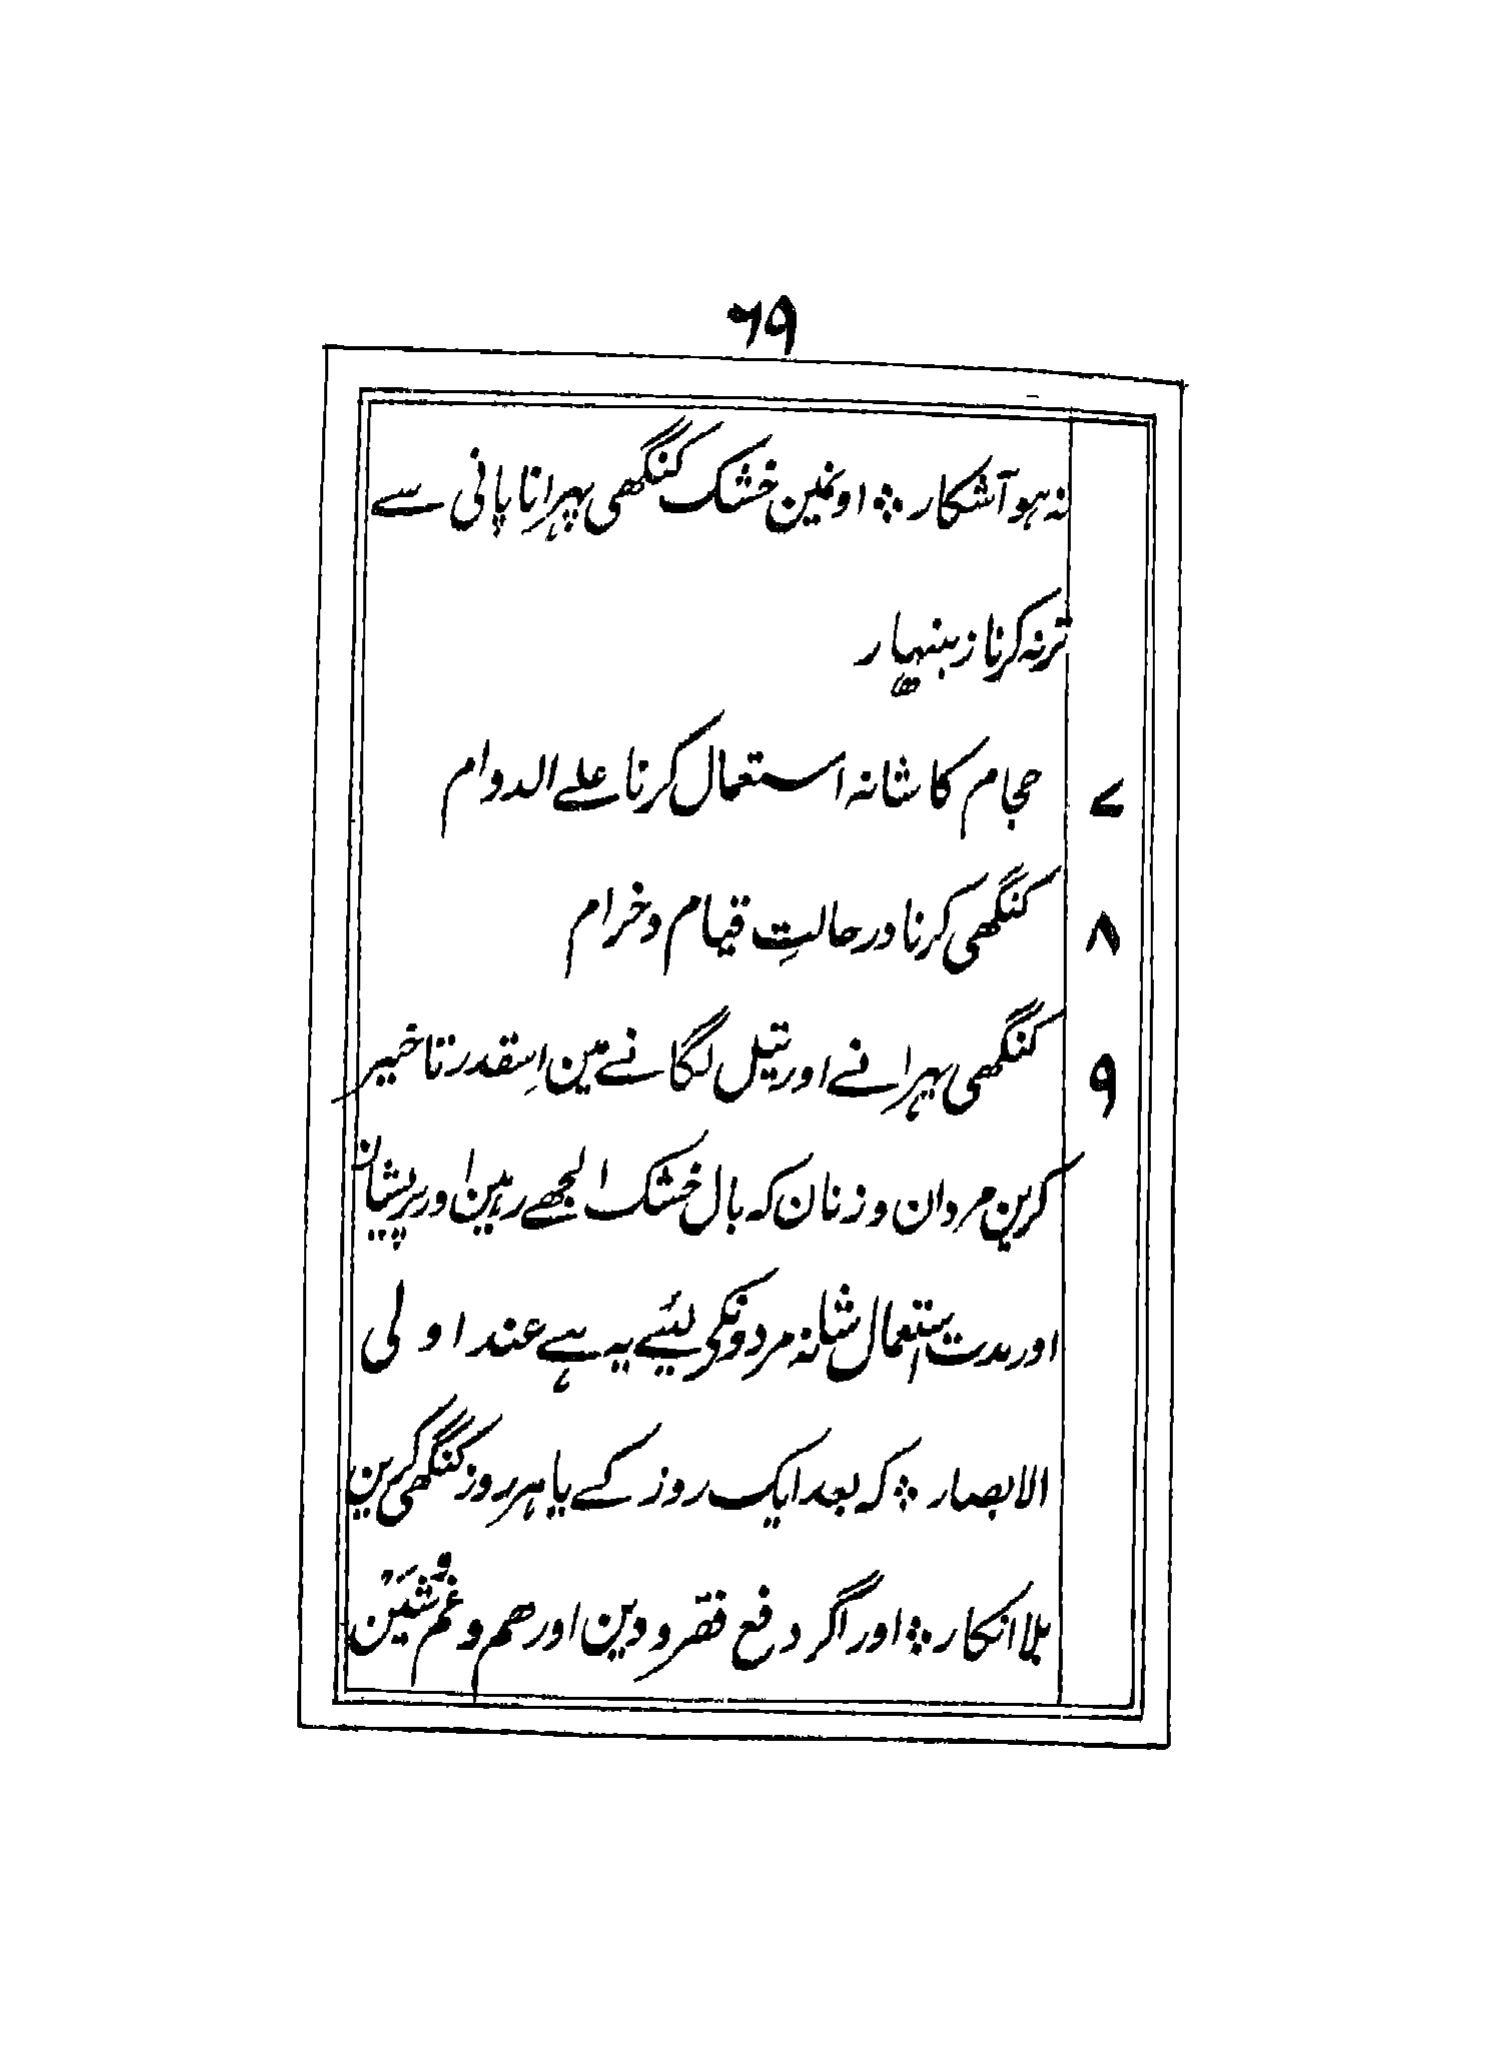 ٦٩
نہ ہو آشکار ؞ اونمین خشک کنگھی پہرانا پانی سے
تر نہ کرنا زینہار
٧ حجام کا شانہ استعمال کرنا علے الدوام
٨ کنگھی کرنا در حالتِ قیام و خرام
٩ کنگھی پہرانے اور تیل لگانے مین اِسقدر تاخیر
کرین مردان و زنان کہ بال خشک الجھے رہین اور پریشان
اور مدت استعمال شانہ مردونکی لیئے یہ ہے عند اولی
الابصار ؞ کہ بعد ایک روز کے یا ہر روز کنگھی کرین
بلا انکار ؞ اور اگر دفع فقر و دین اور ھم و غم و شَین